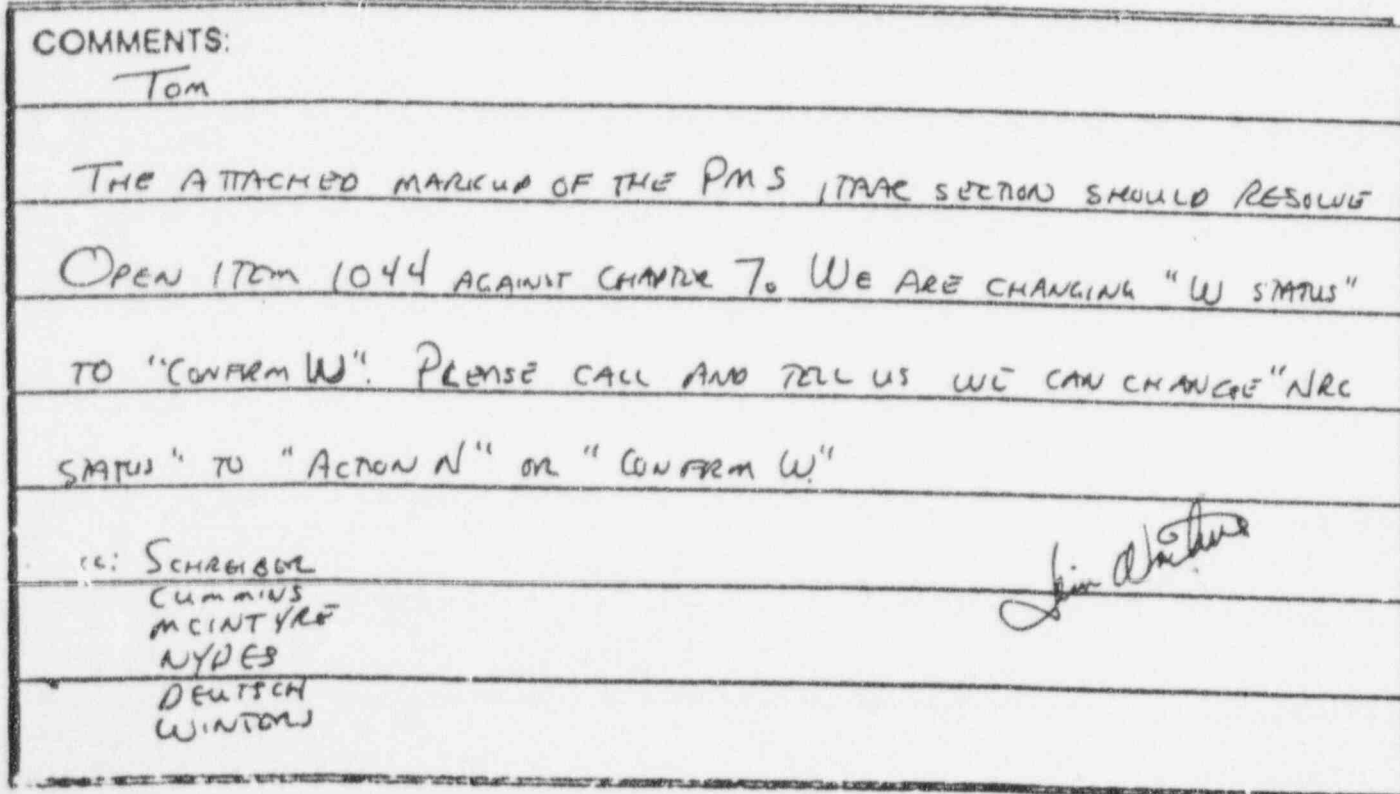 COMMENTS:
Tom
THE ATTACHED MARKUP OF THE PMS ITAAC SECTION SHOULD RESOLVE
OPEN ITEM 1044 AGAINST CHAPTER 7. WE ARE CHANGING "W STATUS"
TO "CONFIRM W". PLEASE CALL AND TELL US WE CAN CHANGE "NRC
STATUS" TO "ACTION N" OR "CONFIRM W."
cc: SCHREIBER
CUMMINS
MCINTYRE
NYDES
DEUTSCH
WINTERS
Jim